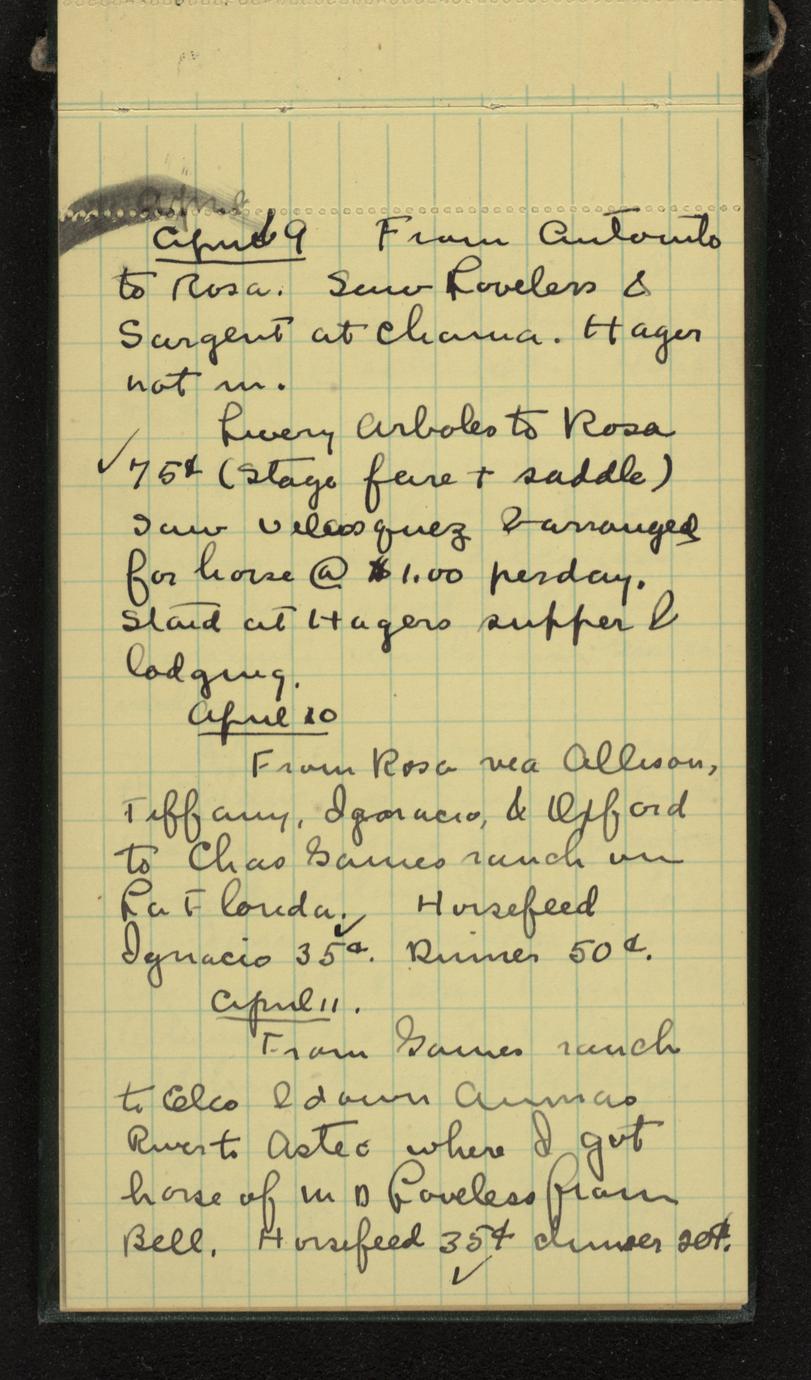 April
April 9 From Antonito
to Rosa. Saw Loveless &
Sargent at Chama. Hager
not in.
Livery Arboles to Rosa
✓75¢ (Stage fare + saddle)
Saw Velasquez & arranged
for horse @ $1.00 perday.
Staid at Hagers supper &
lodging.
April 10
From Rosa via Allison,
Tiffany, Ignacio, & Oxford
to Chas Games ranch on
La Florida. Horsefeed
Ignacio 35¢. Dinner 50¢.
April 11.
From Games ranch
to Elco & down Animas
River to Astec where I got
horse of M D Loveless from
Bell. Horsefeed 35¢ dinner 50¢.
✓